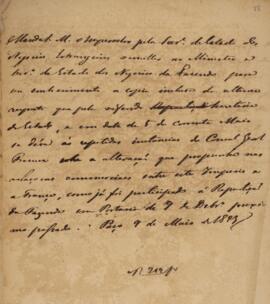 Manda S. M. o Imperador pela Secr.ª d'Estado dos
Negocios Estrangeiros remetter ao Ministro e
Secr.º de Estado dos Negocios da Fazenda para
seu conhecimento a copia incluza da ultima
resposta que pela referida Secretaria
de Estado, e em data de 5 do corrente Maio
se dera às repetidas instancias do Consul Geral
Francez sobre a alteração que propunha nas
relaçoens commerciaes entre este Imperio e
a França, como já foi participado à Repartição
da Fazenda em Portaria de 7 de Debr.º proxi
mo passado. Paço 9 de Maio de 1823